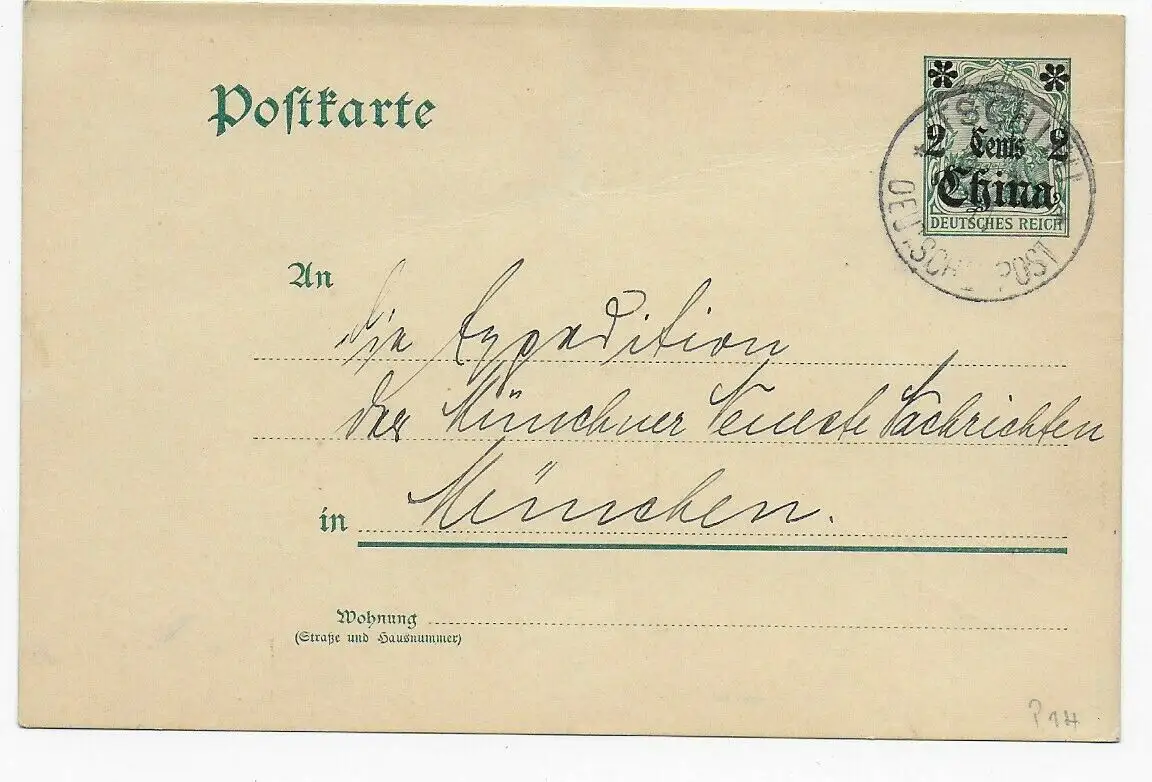 Postkarte
2 Cents 2
China
DEUTSCHES REICH
DEUTSCHE POST
An
die Expedition
der Münchner Neueste Nachrichten
in München.
Wohnung
(Straße und Hausnummer)
P 14